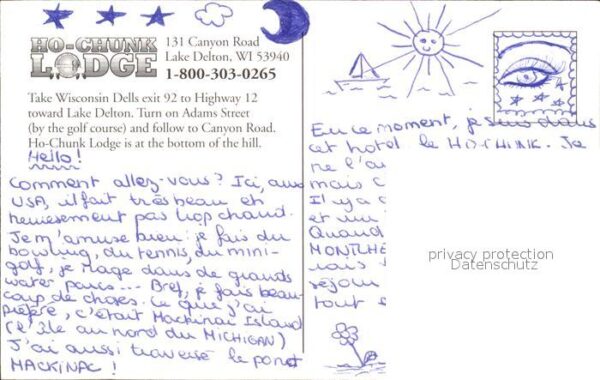 HO-CHUNK
LODGE
131 Canyon Road
Lake Delton, WI 53940
1-800-303-0265
Take Wisconsin Dells exit 92 to Highway 12
toward Lake Delton. Turn on Adams Street
(by the golf course) and follow to Canyon Road.
Ho-Chunk Lodge is at the bottom of the hill.
Hello!
Comment allez-vous? Ici, aux
USA, il fait très beau et
heureusement pas trop chaud.
Je m'amuse bien: je fais du
bowling, du tennis, du mini-
golf, je nage dans de grands
water parcs... Bref, je fais beau-
coup de choses. Ce que j'ai
préféré, c'était Mackinac Island
(l'île au nord du MICHIGAN)
J'ai aussi traversé le pont
MACKINAC!
En ce moment, je suis dans
cet hotel le HO-CHINK. Je
ne l'a
mais c
Il y a
et un
Quand
MONTLHE
séjou
tout
privacy protection
Datenschutz